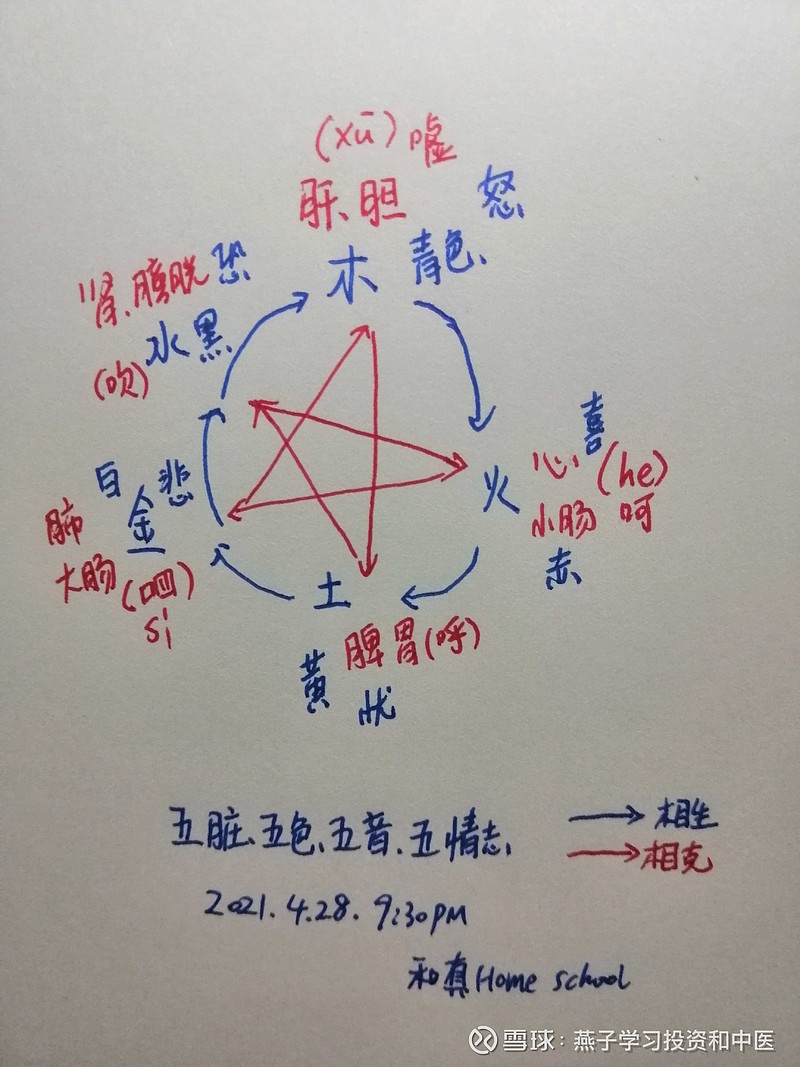 (xū) 嘘
肝、胆 怒
木 青色、
肾、膀胱 恐
水 黑
(吹)
喜
火 心、(he)
小肠 呵
赤
白 金 悲
肺
大肠 (呬)
si
土
黄 脾 胃 (呼)
忧
五脏、五色、五音、五情志、
相生
相克
2021.4.28. 9:30PM
和真 Home school
雪球：燕子学习投资和中医